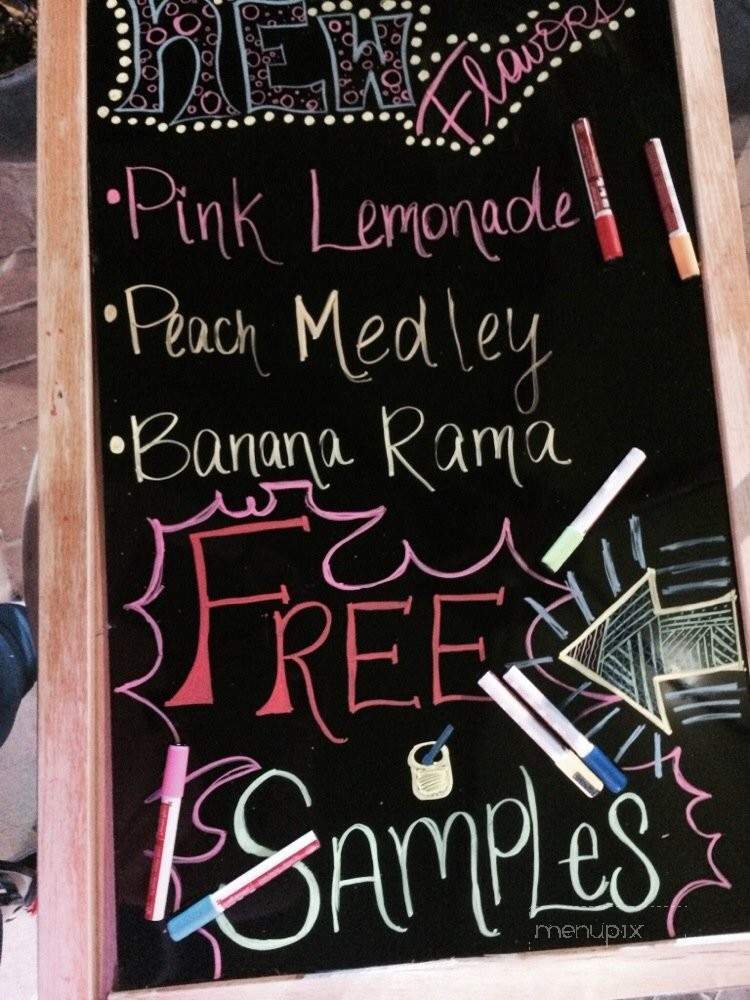 NEW
Flavors
• Pink Lemonade
• Peach Medley
• Banana Rama
FREE
SAMPLeS
menupix